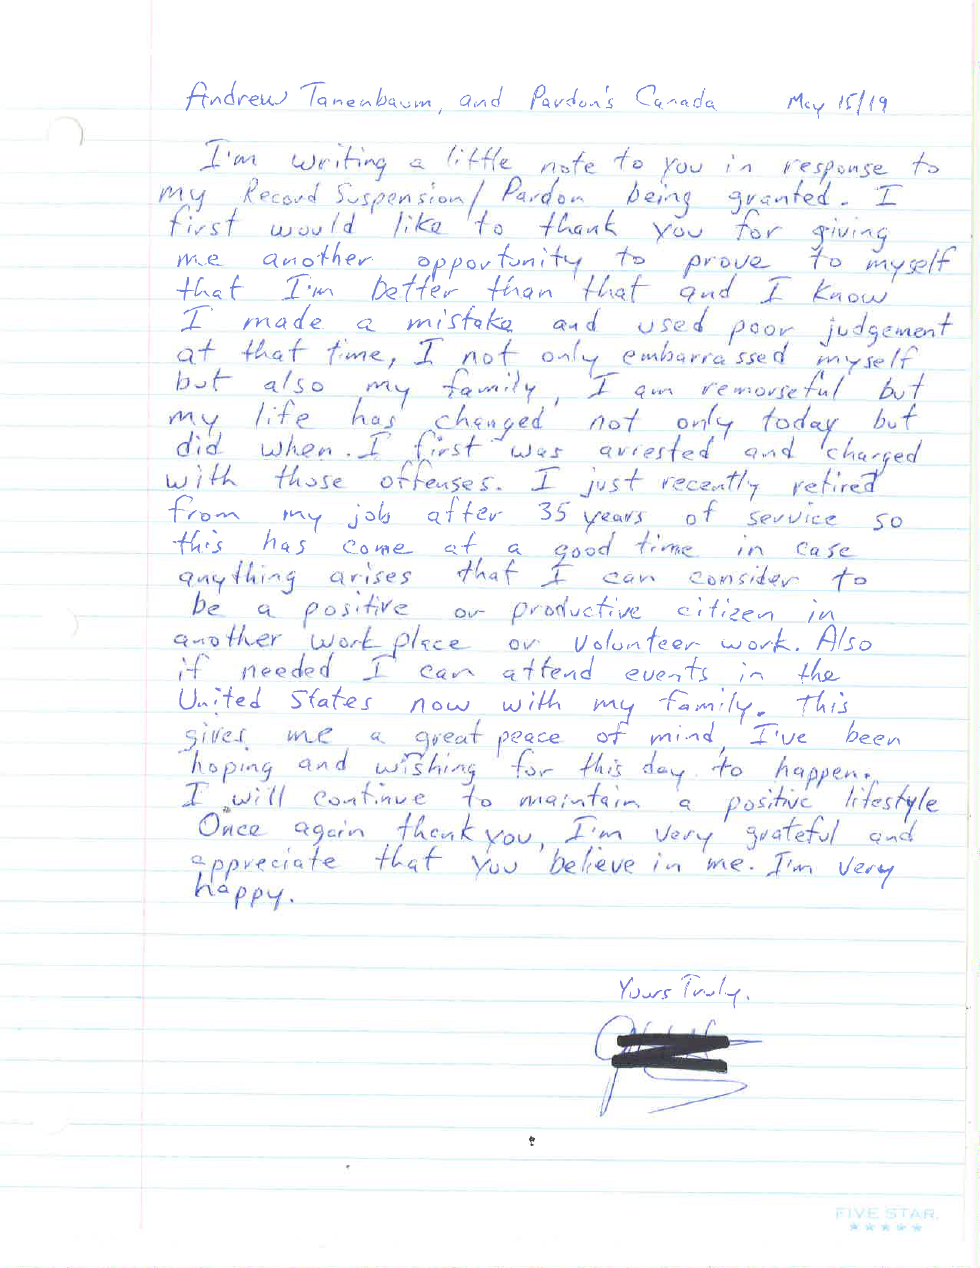 Andrew Tanenbaum, and Pardon's Canada May 15/19
I'm writing a little note to you in response to
my Record Suspension/Pardon being granted. I
first would like to thank you for giving
me another opportunity to prove to myself
that I'm better than that and I know
I made a mistake and used poor judgement
at that time, I not only embarrassed myself
but also my family, I am remorseful but
my life has changed not only today but
did when I first was arrested and charged
with those offenses. I just recently retired
from my job after 35 years of service so
this has come at a good time in case
anything arises that I can consider to
be a positive or productive citizen in
another work place or volunteer work. Also
if needed I can attend events in the
United States now with my family. This
gives me a great peace of mind, I've been
hoping and wishing for this day to happen.
I will continue to maintain a positive lifestyle
Once again thank you, I'm very grateful and
appreciate that you believe in me. I'm very
happy.
Yours Truly.
FIVE STAR.
★★★★★